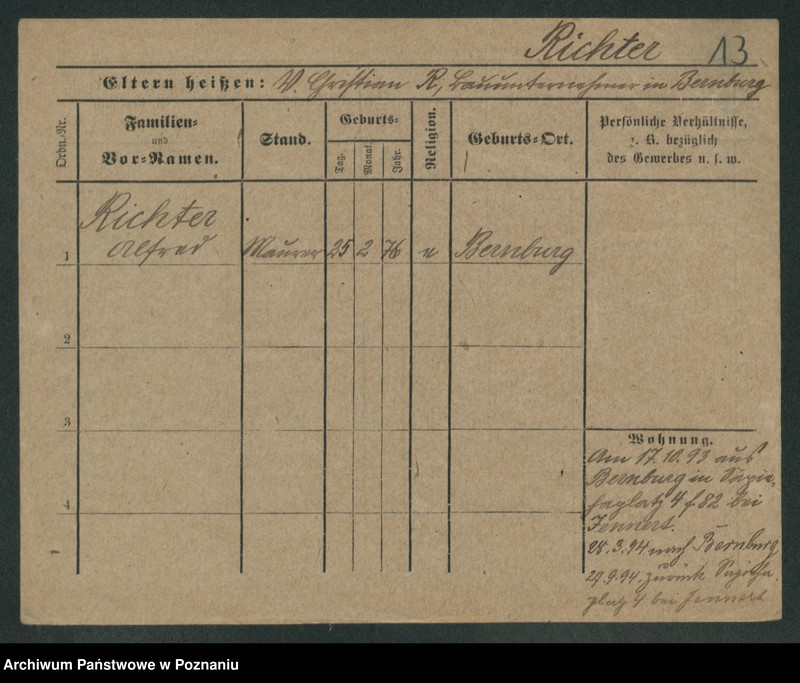 Richter 13
Eltern heißen: V. Christian R, Bauunternehmer in Bernburg
Ordn.-Nr.
Familien-
und
Vor-Namen.
Stand.
Geburts-
Tag.
Monat.
Jahr.
Religion.
Geburts-Ort.
Persönliche Verhältnisse,
z. B. bezüglich
des Gewerbes u. s. w.
Richter
1 Alfred Maurer 25 2 76 e Bernburg
2
3
4
Wohnung.
Am 17.10.93 aus
Bernburg in Sapie-
haplatz 4 f. 82 bei
Jennert.
28.3.94 nach Bernburg
27.9.94. zurück Sapieha
platz 4 bei Jennert
Archiwum Państwowe w Poznaniu